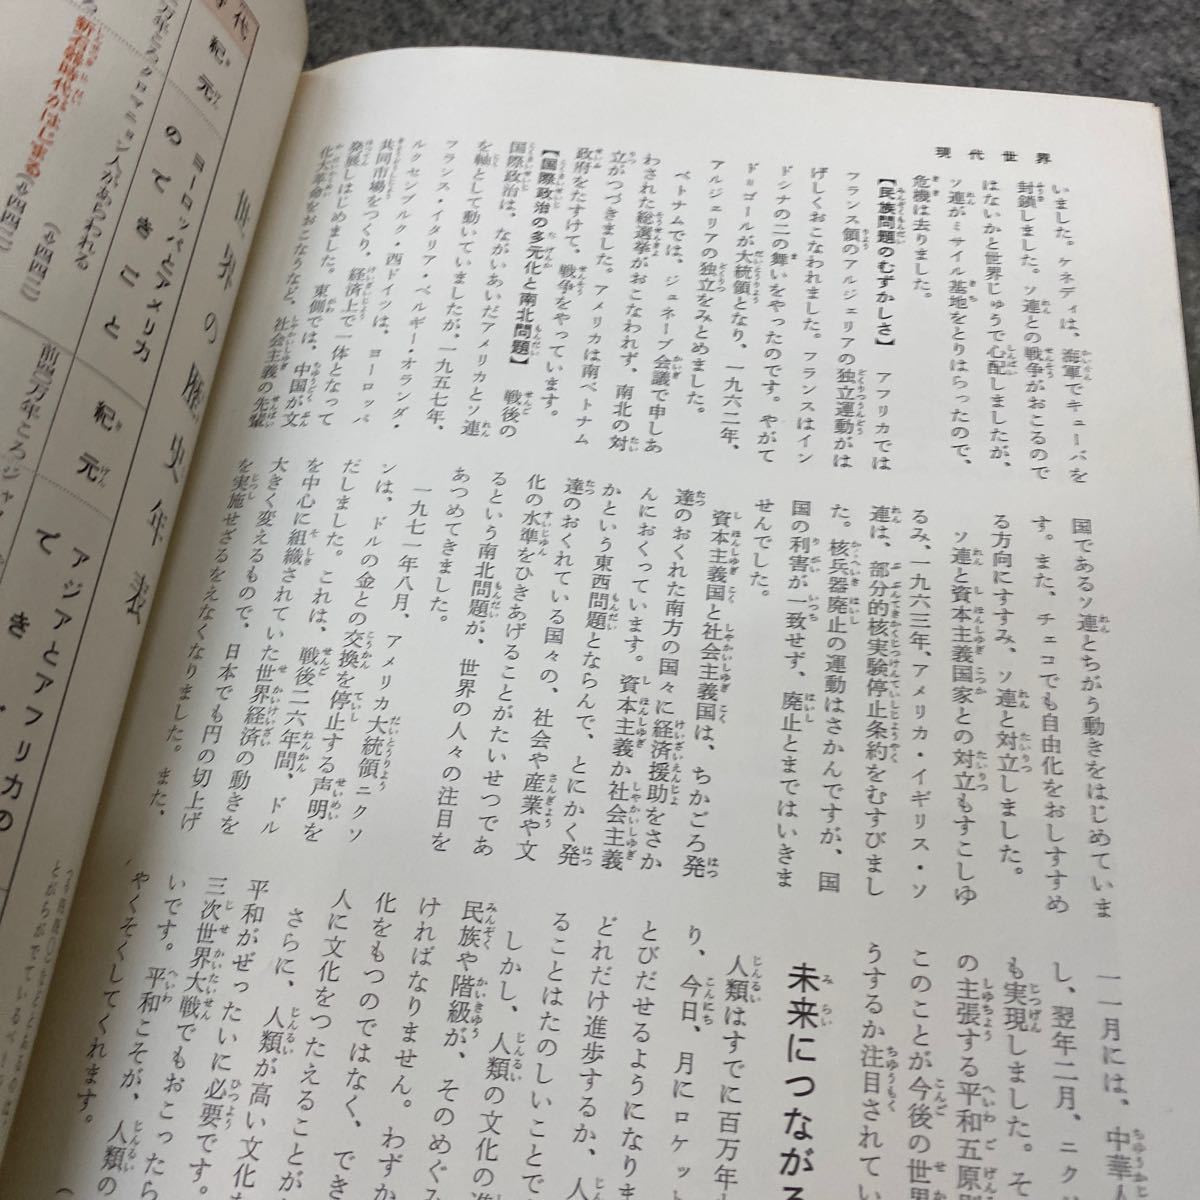 現代世界
いました。ケネディは、海軍でキューバを
封鎖しました。ソ連との戦争がおこるので
はないかと世界じゅうで心配しましたが、
ソ連がミサイル基地をとりはらったので、
危機は去りました。
【民族問題のむずかしさ】 アフリカでは
フランス領のアルジェリアの独立運動がは
げしくおこなわれました。フランスはイン
ドシナの二の舞いをやったのです。やがて
ド=ゴールが大統領となり、一九六二年、
アルジェリアの独立をみとめました。
ベトナムでは、ジュネーブ会議で申しあ
わされた総選挙がおこなわれず、南北の対
立がつづきました。アメリカは南ベトナム
政府をたすけて、戦争をやっています。
【国際政治の多元化と南北問題】 戦後の
国際政治は、ながいあいだアメリカとソ連
を軸として動いていましたが、一九五七年、
フランス・イタリア・ベルギー・オランダ・
ルクセンブルク・西ドイツは、ヨーロッパ
共同市場をつくり、経済上で一体となって
発展しはじめました。東側では、中国が文
化大革命をおこなうなど、社会主義の先輩
国であるソ連とちがう動きをはじめていま
す。また、チェコでも自由化をおしすすめ
る方向にすすみ、ソ連と対立しました。
ソ連と資本主義国家との対立もすこしゆ
るみ、一九六三年、アメリカ・イギリス・ソ
連は、部分的核実験停止条約をむすびまし
た。核兵器廃止の運動はさかんですが、国
国の利害が一致せず、廃止とまではいきま
せんでした。
資本主義国と社会主義国は、ちかごろ発
達のおくれた南方の国々に経済援助をさか
んにおくっています。資本主義か社会主義
かという東西問題とならんで、とにかく発
達のおくれている国々の、社会や産業や文
化の水準をひきあげることがたいせつであ
るという南北問題が、世界の人々の注目を
あつめてきました。
一九七一年八月、アメリカ大統領ニクソ
ンは、ドルの金との交換を停止する声明を
だしました。これは、戦後二六年間、ドル
を中心に組織されていた世界経済の動きを
大きく変えるもので、日本でも円の切上げ
を実施せざるをえなくなりました。また、
一一月には、中華
し、翌年二月、ニク
も実現しました。そ
の主張する平和五原
このことが今後の世界
うするか注目されてい
未来につながる
人類はすでに百万年
り、今日、月にロケッ
とびだせるようになりま
どれだけ進歩するか、人
ることはたのしいことで
しかし、人類の文化の進
民族や階級が、そのめぐみ
ければなりません。わずか
化をもつのではなく、でき
人に文化をつたえることが
さらに、人類が高い文化
平和がぜったいに必要です。
三次世界大戦でもおこったら
いです。平和こそが、人類の
やくそくしてくれます。
世界の歴史年表
時代
紀元
ヨーロッパとアメリカ
のできこと
紀元
アジアとアフリカの
でき
クロマニョン人があらわれる
新石器時代がはじまる
前四万年ころ